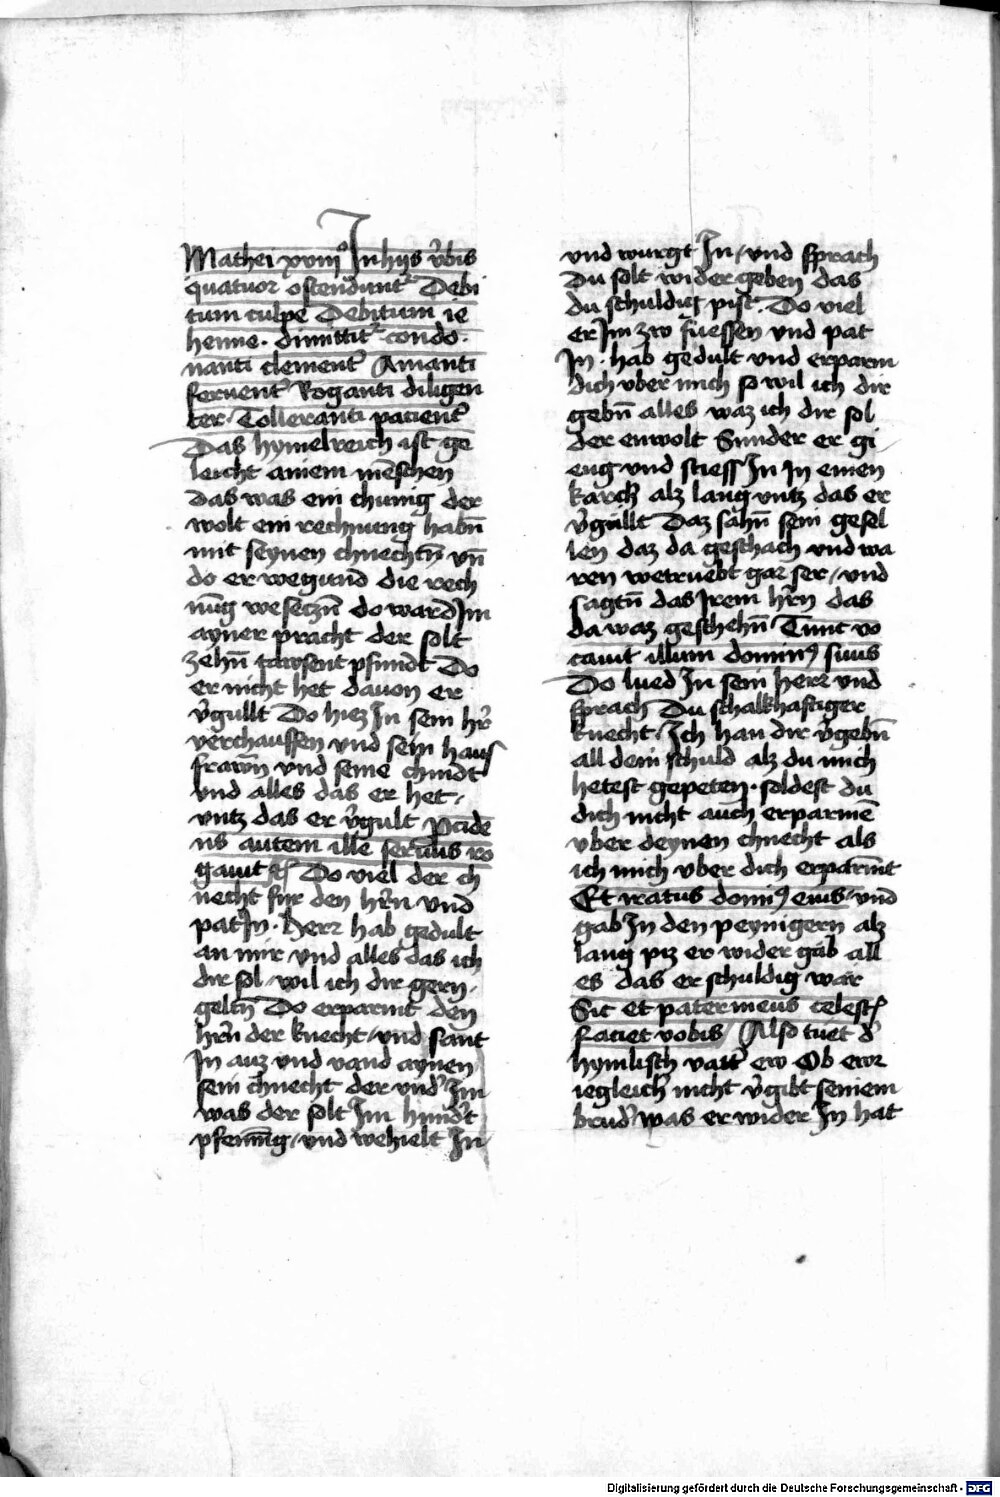 Mathei xviij° In hijs v̓bis
quatuor ostendunt᷑ Debi
tum culpe Debitum ie
henne · dimittit᷑ condo
nanti clement᷑ Amanti
feruent᷑ Roganti diligen
ter · Tolleranti pacient᷑
Das hymelreich ist ge
leicht ainem mēschen
das was ein chunig der
wolt ein rechnueng habn̄
mit seynen chnechtn̄ vn̄
do er wegund die rech
nūg weseczn̄ do ward Im
ayner pracht der solt
zehn̄ tawsent pfundt Do
er nicht het dauon er
v̓gullt Do hiez In sein hr̄
verchauffen vnd sein haus
frawn̄ vnd seine chindt
vnd alles das er het /
vntz das er v̓gult Pcide
ns autem ille seruus ro
gauit rc̄ Do viel der ch
necht fur den hr̄n vnd
pat In · Herr hab gedult
an mir vnd alles das ich
dir sol / wil ich dir gern /
geltn̄ Do erparmt den
hr̄n der knecht / vnd sant
In auz vnd vand aynen
sein chnecht der vnd̓ Im
was der solt Im hund̓t
pfennīg / vnd wehielt In /
vnd wurgt In / vnd sprach
Du solt wider geben das
du schuldig pist · Do viel
er Im zw fuessen vnd pat
In · hab gedult vnd erparm
dich vber mich so wil ich dir
gebn̄ alles waz ich dir sol
der enwolt Sunder er gi
eng vnd stiess In in einen
karck alz lang vntz das er
v̓gullt Daz sahn̄ sein gesel
len daz da geschach vnd wa
ren wetruebt gar ser / vnd
sagtn̄ das Irem hr̄n das
da waz geschehn̄ Tunc vo
cauit illum domin9 suus
Do lued In sein herr vnd
sprach Du schalkhaftiger
knecht / Ich han dir v̓gebn̄
all dein schuld alz du mich
hetest gepeten · soldest du
dich nicht auch erparmē
vber deynen chnecht als
ich mich vber dich erparm̄t
Et iratus domi9 eius / vnd
gab In den peynigern alz
lang piz er wider gab all
es das er schuldig war
Sic et pater meus celest
faciet vobis / Also tuet d̓
hymlisch vatt̓ ew Ob ewr
iegleich̓ nicht v̓gibt seinem
brud̓ was er wider In hat
Digitalisierung gefördert durch die Deutsche Forschungsgemeinschaft - DFG